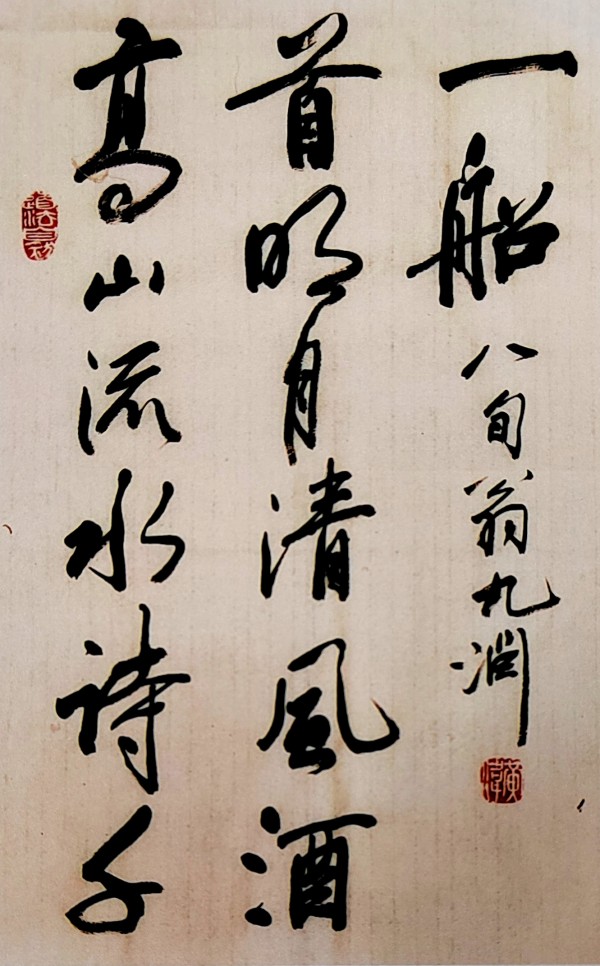 道法自然
高山流水詩千
首明月清風酒
一船 八旬翁九淵